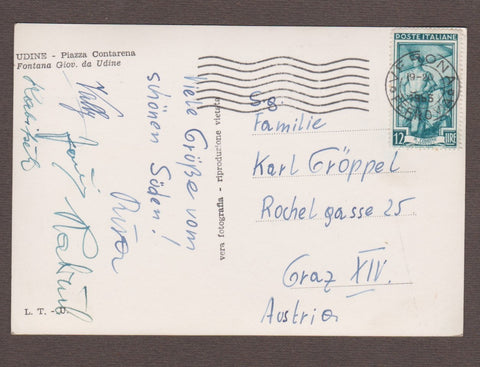 UDINE - Piazza Contarena
Fontana Giov. da Udine
Viele Grüße vom
schönen Süden!
vera fotografia - riproduzione vietata
L. T. -
POSTE ITALIANE
12 LIRE
VERONA
19-20
Sg.
Familie
Karl Gröppel
Rochelgasse 25
Graz XIV.
Austria